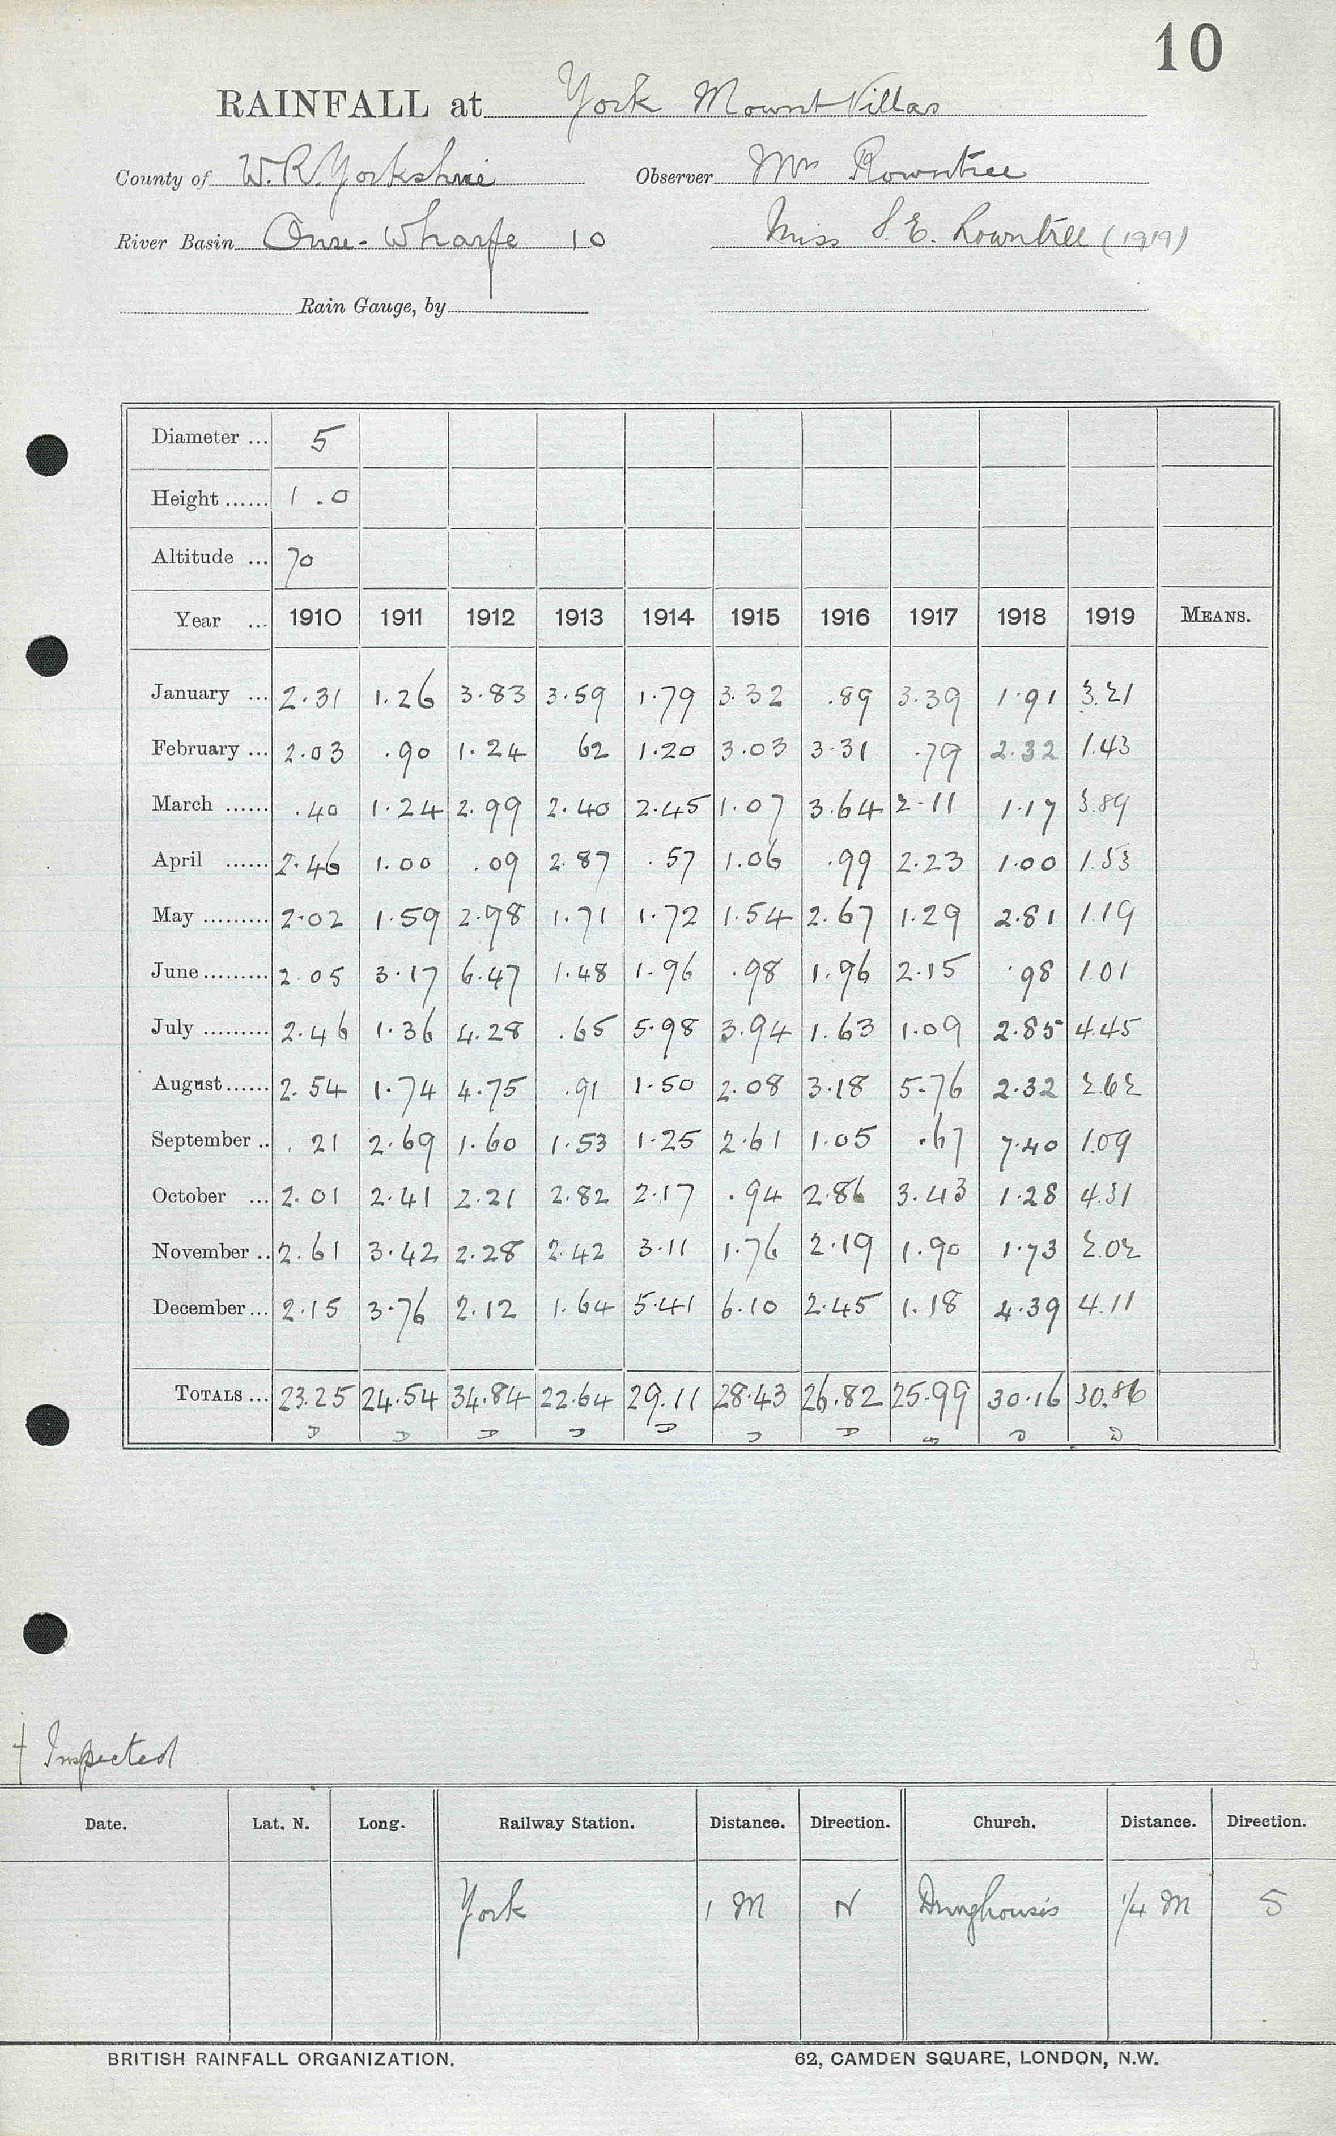 10
RAINFALL at York Mount Villas
County of W.R. Yorkshire Observer Mrs Rowntree
River Basin Ouse-Wharfe 10 Miss S.E. Rowntree (1919)
Rain Gauge, by
Diameter ... 5
Height ...... 1.0
Altitude ... 70
Year ... 1910 1911 1912 1913 1914 1915 1916 1917 1918 1919 MEANS.
January ... 2.31 1.26 3.83 3.59 1.79 3.32 .89 3.39 1.91 3.21
February ... 2.03 .90 1.24 62 1.20 3.03 3.31 .79 2.32 1.43
March ...... .40 1.24 2.99 2.40 2.45 1.07 3.64 2.11 1.17 3.89
April ...... 2.46 1.00 .09 2.87 .57 1.06 .99 2.23 1.00 1.53
May ......... 2.02 1.59 2.98 1.71 1.72 1.54 2.67 1.29 2.81 1.19
June ......... 2.05 3.17 6.47 1.48 1.96 .98 1.96 2.15 .98 1.01
July ......... 2.46 1.36 4.28 .65 5.98 3.94 1.63 1.09 2.85 4.45
August ...... 2.54 1.74 4.75 .91 1.50 2.08 3.18 5.76 2.32 2.62
September .. .21 2.69 1.60 1.53 1.25 2.61 1.05 .67 7.40 1.09
October ... 2.01 2.41 2.21 2.82 2.17 .94 2.86 3.43 1.28 4.31
November .. 2.61 3.42 2.28 2.42 3.11 1.76 2.19 1.90 1.73 2.02
December ... 2.15 3.76 2.12 1.64 5.41 6.10 2.45 1.18 4.39 4.11
TOTALS ... 23.25 24.54 34.84 22.64 29.11 28.43 26.82 25.99 30.16 30.86
† Inspected
Date. Lat. N. Long. Railway Station. Distance. Direction. Church. Distance. Direction.
York 1 M N Dringhouses 1/4 M S
BRITISH RAINFALL ORGANIZATION. 62, CAMDEN SQUARE, LONDON, N.W.